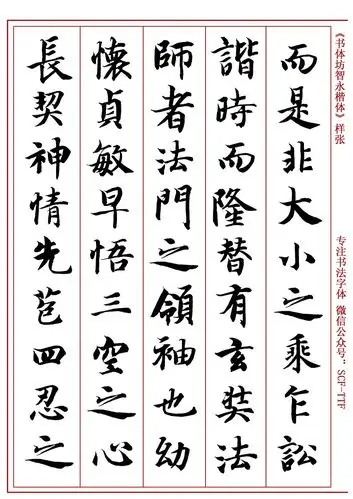 《书体坊智永楷体》样张
而是非大小之乘乍訟
諧時而隆替有玄奘法
師者法門之領袖也幼
懷貞敏早悟三空之心
長契神情先苞四忍之
专注书法字体 微信公众号：SCF-TTF